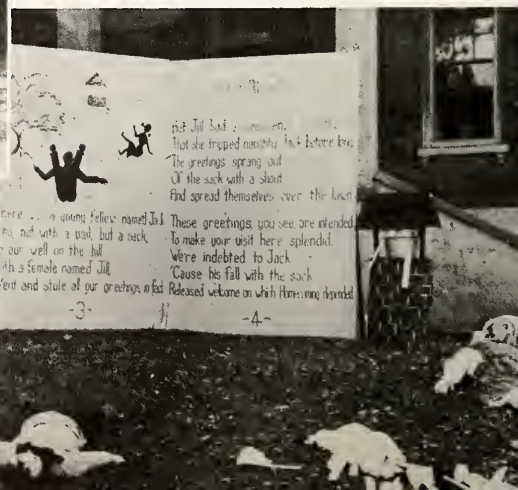 a young fellow named Jack
not with a pail, but a sack,
our well on the hill
a female named Jill,
and stole all our greetings in fact.
-3-
Jill had
That she tripped naughty Jack before long
The greetings sprang out
Of the sack with a shout
And spread themselves over the lawn
These greetings, you see, are intended
To make your visit here splendid.
We're indebted to Jack
'Cause his fall with the sack
Released welcome on which Homecoming depended.
-4-